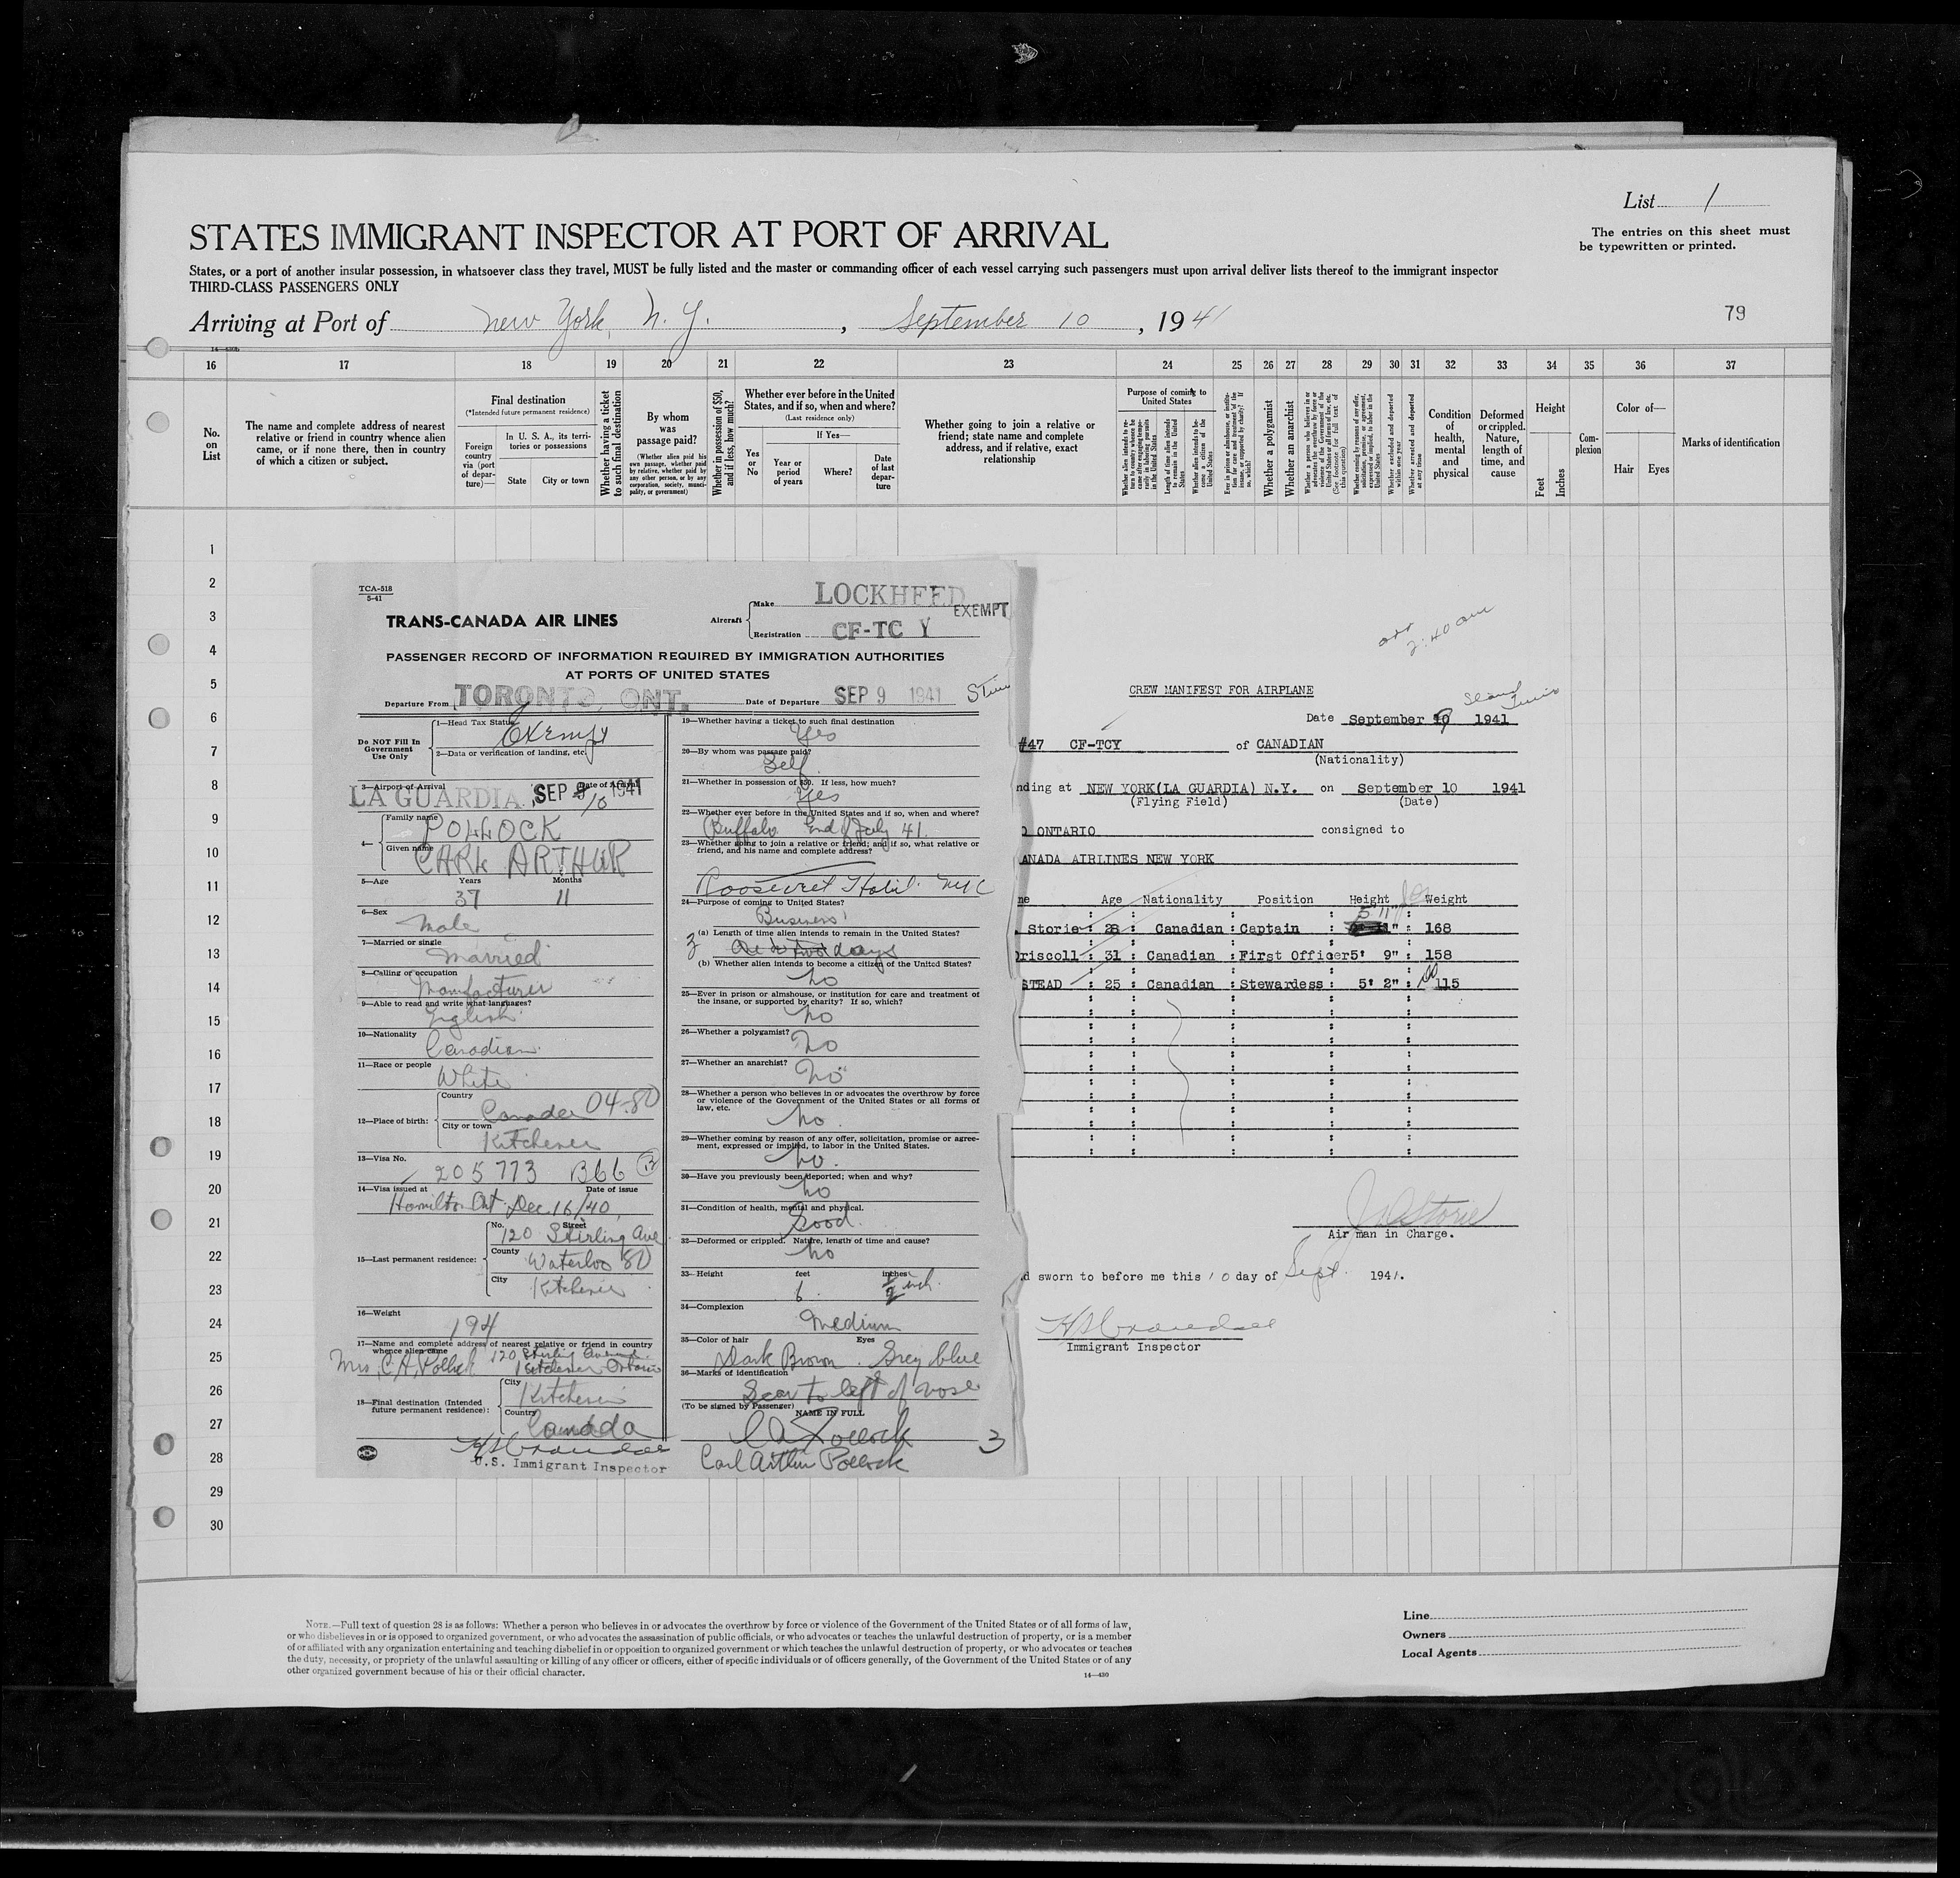 List 1
STATES IMMIGRANT INSPECTOR AT PORT OF ARRIVAL
The entries on this sheet must
be typewritten or printed.
States, or a port of another insular possession, in whatsoever class they travel, MUST be fully listed and the master or commanding officer of each vessel carrying such passengers must upon arrival deliver lists thereof to the immigrant inspector
THIRD-CLASS PASSENGERS ONLY
Arriving at Port of New York, N. Y. , September 10 , 1941
79
16 17 18 19 20 21 22 23 24 25 26 27 28 29 30 31 32 33 34 35 36 37
No. on List
The name and complete address of nearest relative or friend in country whence alien came, or if none there, then in country of which a citizen or subject.
Final destination
(*Intended future permanent residence)
Foreign country via (port of departure)—
In U. S. A., its territories or possessions
State
City or town
Whether having a ticket to such final destination
By whom was passage paid?
(Whether alien paid his own passage, whether paid by relative, whether paid by any other person, or by any corporation, society, municipality, or government)
Whether in possession of $50, and if less, how much?
Whether ever before in the United States, and if so, when and where?
(Last residence only)
If Yes—
Yes or No
Year or period of years
Where?
Date of last departure
Whether going to join a relative or friend; state name and complete address, and if relative, exact relationship
Purpose of coming to United States
Whether a polygamist
Whether an anarchist
Condition of health, mental and physical
Deformed or crippled. Nature, length of time, and cause
Height
Feet
Inches
Complexion
Color of—
Hair
Eyes
Marks of identification
1
2
3
4
5
6
7
8
9
10
11
12
13
14
15
16
17
18
19
20
21
22
23
24
25
26
27
28
29
30
TCA-518
5-41
TRANS-CANADA AIR LINES
Aircraft
Make LOCKHEED
EXEMPT
Registration CF-TC Y
PASSENGER RECORD OF INFORMATION REQUIRED BY IMMIGRATION AUTHORITIES
AT PORTS OF UNITED STATES
Departure From TORONTO, ONT. Date of Departure SEP 9 1941
Do NOT Fill In Government Use Only
1—Head Tax Status Exempt
2—Data or verification of landing, etc.
3—Airport of Arrival Date of Arrival
LA GUARDIA SEP 9 1941
10
4— Family name POLLOCK
Given name CARL ARTHUR
5—Age Years 37 Months 11
6—Sex Male
7—Married or single Married
8—Calling or occupation Manufacturer
9—Able to read and write what languages? English
10—Nationality Canadian
11—Race or people White
12—Place of birth: Country Canada 04-80
City or town Kitchener
13—Visa No. 205773 B66 B
14—Visa issued at Date of issue
Hamilton Ont. Dec. 16/40
15—Last permanent residence: No. Street 120 Stirling Ave
County Waterloo 80
City Kitchener
16—Weight 194
17—Name and complete address of nearest relative or friend in country whence alien came
Mrs. C. A. Pollock 120 Stirling Avenue
Kitchener Ontario
18—Final destination (Intended future permanent residence): City Kitchener
Country Canada
U.S. Immigrant Inspector
19—Whether having a ticket to such final destination
Yes
20—By whom was passage paid?
Self
21—Whether in possession of $50. If less, how much?
Yes
22—Whether ever before in the United States and if so, when and where?
Buffalo End of July 41.
23—Whether going to join a relative or friend; and if so, what relative or friend, and his name and complete address?
Roosevelt Hotel NYC
24—Purpose of coming to United States?
Business
(a) Length of time alien intends to remain in the United States?
3 One or two days
(b) Whether alien intends to become a citizen of the United States?
No
25—Ever in prison or almshouse, or institution for care and treatment of the insane, or supported by charity? If so, which?
No
26—Whether a polygamist?
No
27—Whether an anarchist?
No
28—Whether a person who believes in or advocates the overthrow by force or violence of the Government of the United States or all forms of law, etc.
No.
29—Whether coming by reason of any offer, solicitation, promise or agreement, expressed or implied, to labor in the United States.
No.
30—Have you previously been deported; when and why?
No
31—Condition of health, mental and physical.
Good.
32—Deformed or crippled. Nature, length of time and cause?
No
33—Height feet inches
6 1/2 inch.
34—Complexion
Medium
35—Color of hair Eyes
Dark Brown. Grey blue
36—Marks of identification
Scar to left of nose
(To be signed by Passenger) NAME IN FULL
C A Pollock
Carl Arthur Pollock
3
arr 2:40 am
CREW MANIFEST FOR AIRPLANE
Date September 9 1941
#47 CF-TCY of CANADIAN
(Nationality)
nding at NEW YORK(LA GUARDIA) N.Y. on September 10 1941
(Flying Field) (Date)
O ONTARIO consigned to
ANADA AIRLINES NEW YORK
me Age Nationality Position Height Weight
Storie 28 Canadian Captain 5' 11" 168
Driscoll 31 Canadian First Officer 5' 9" 158
STEAD 25 Canadian Stewardess 5' 2" 115
Air man in Charge.
d sworn to before me this 10 day of Sept. 1941.
Immigrant Inspector
NOTE.—Full text of question 28 is as follows: Whether a person who believes in or advocates the overthrow by force or violence of the Government of the United States or of all forms of law,
or who disbelieves in or is opposed to organized government, or who advocates the assassination of public officials, or who advocates or teaches the unlawful destruction of property, or is a member
of or affiliated with any organization entertaining and teaching disbelief in or opposition to organized government or which teaches the unlawful destruction of property, or who advocates or teaches
the duty, necessity, or propriety of the unlawful assaulting or killing of any officer or officers, either of specific individuals or of officers generally, of the Government of the United States or of any
other organized government because of his or their official character.
14—430
Line
Owners
Local Agents